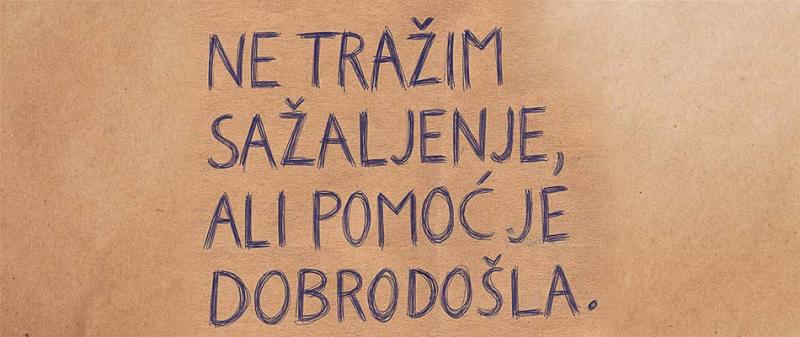 NE TRAŽIM
SAŽALJENJE,
ALI POMOĆ JE
DOBRODOŠLA.